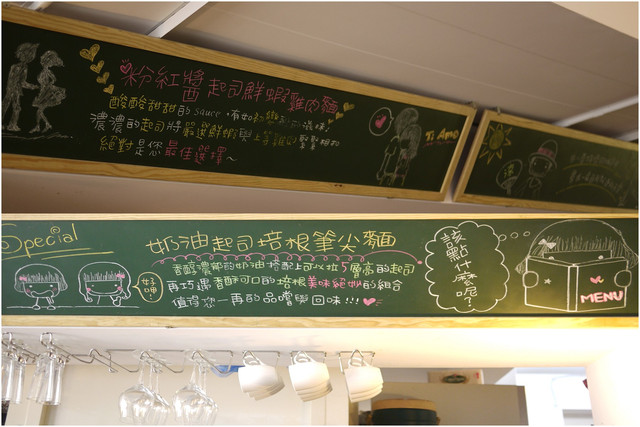 粉紅醬起司鮮蝦雞肉麵
酸酸甜甜的sauce,有如初戀的滋味,
濃濃的起司將嚴選鮮蝦與上等雞肉緊緊相扣
絕對是您最佳選擇~
Ti Amo
Special
奶油起司培根筆尖麵
香醇濃郁的奶油搭配上可以拉5層高的起司
再巧遇香酥可口的培根美味絕妙的組合
值得您一再的品嚐與回味!!!
好哩!
該點什麼呢?
MENU